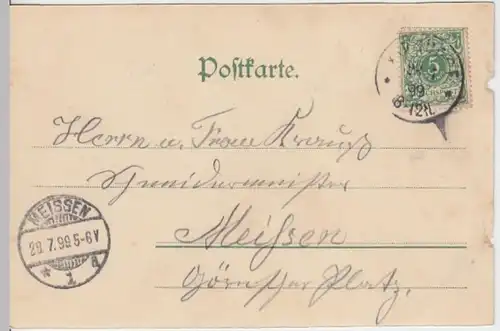 Postkarte.
5
99
8-12N.
Herrn u. Frau Krauß
Schneidermeister
Meißen
Görnscher Platz.
MEISSEN
29.7.99 5-6V
* 1 d